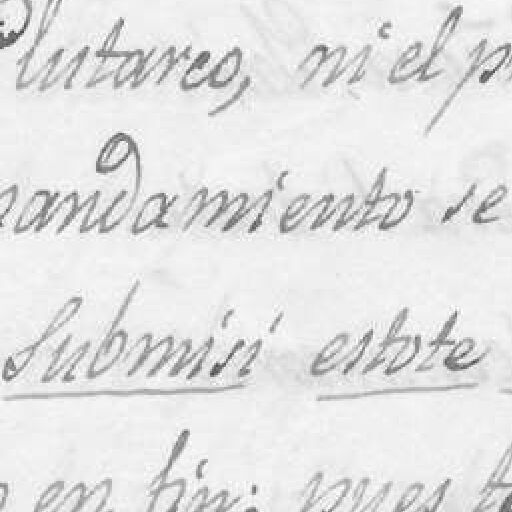 Plutarco, ni el
mandamiento se
Submisi estote
en fin: pues